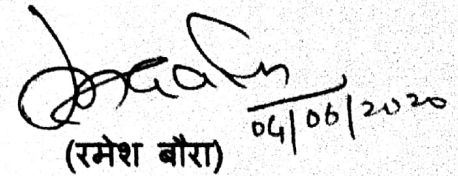 04/06/2020
(रमेश बौरा)